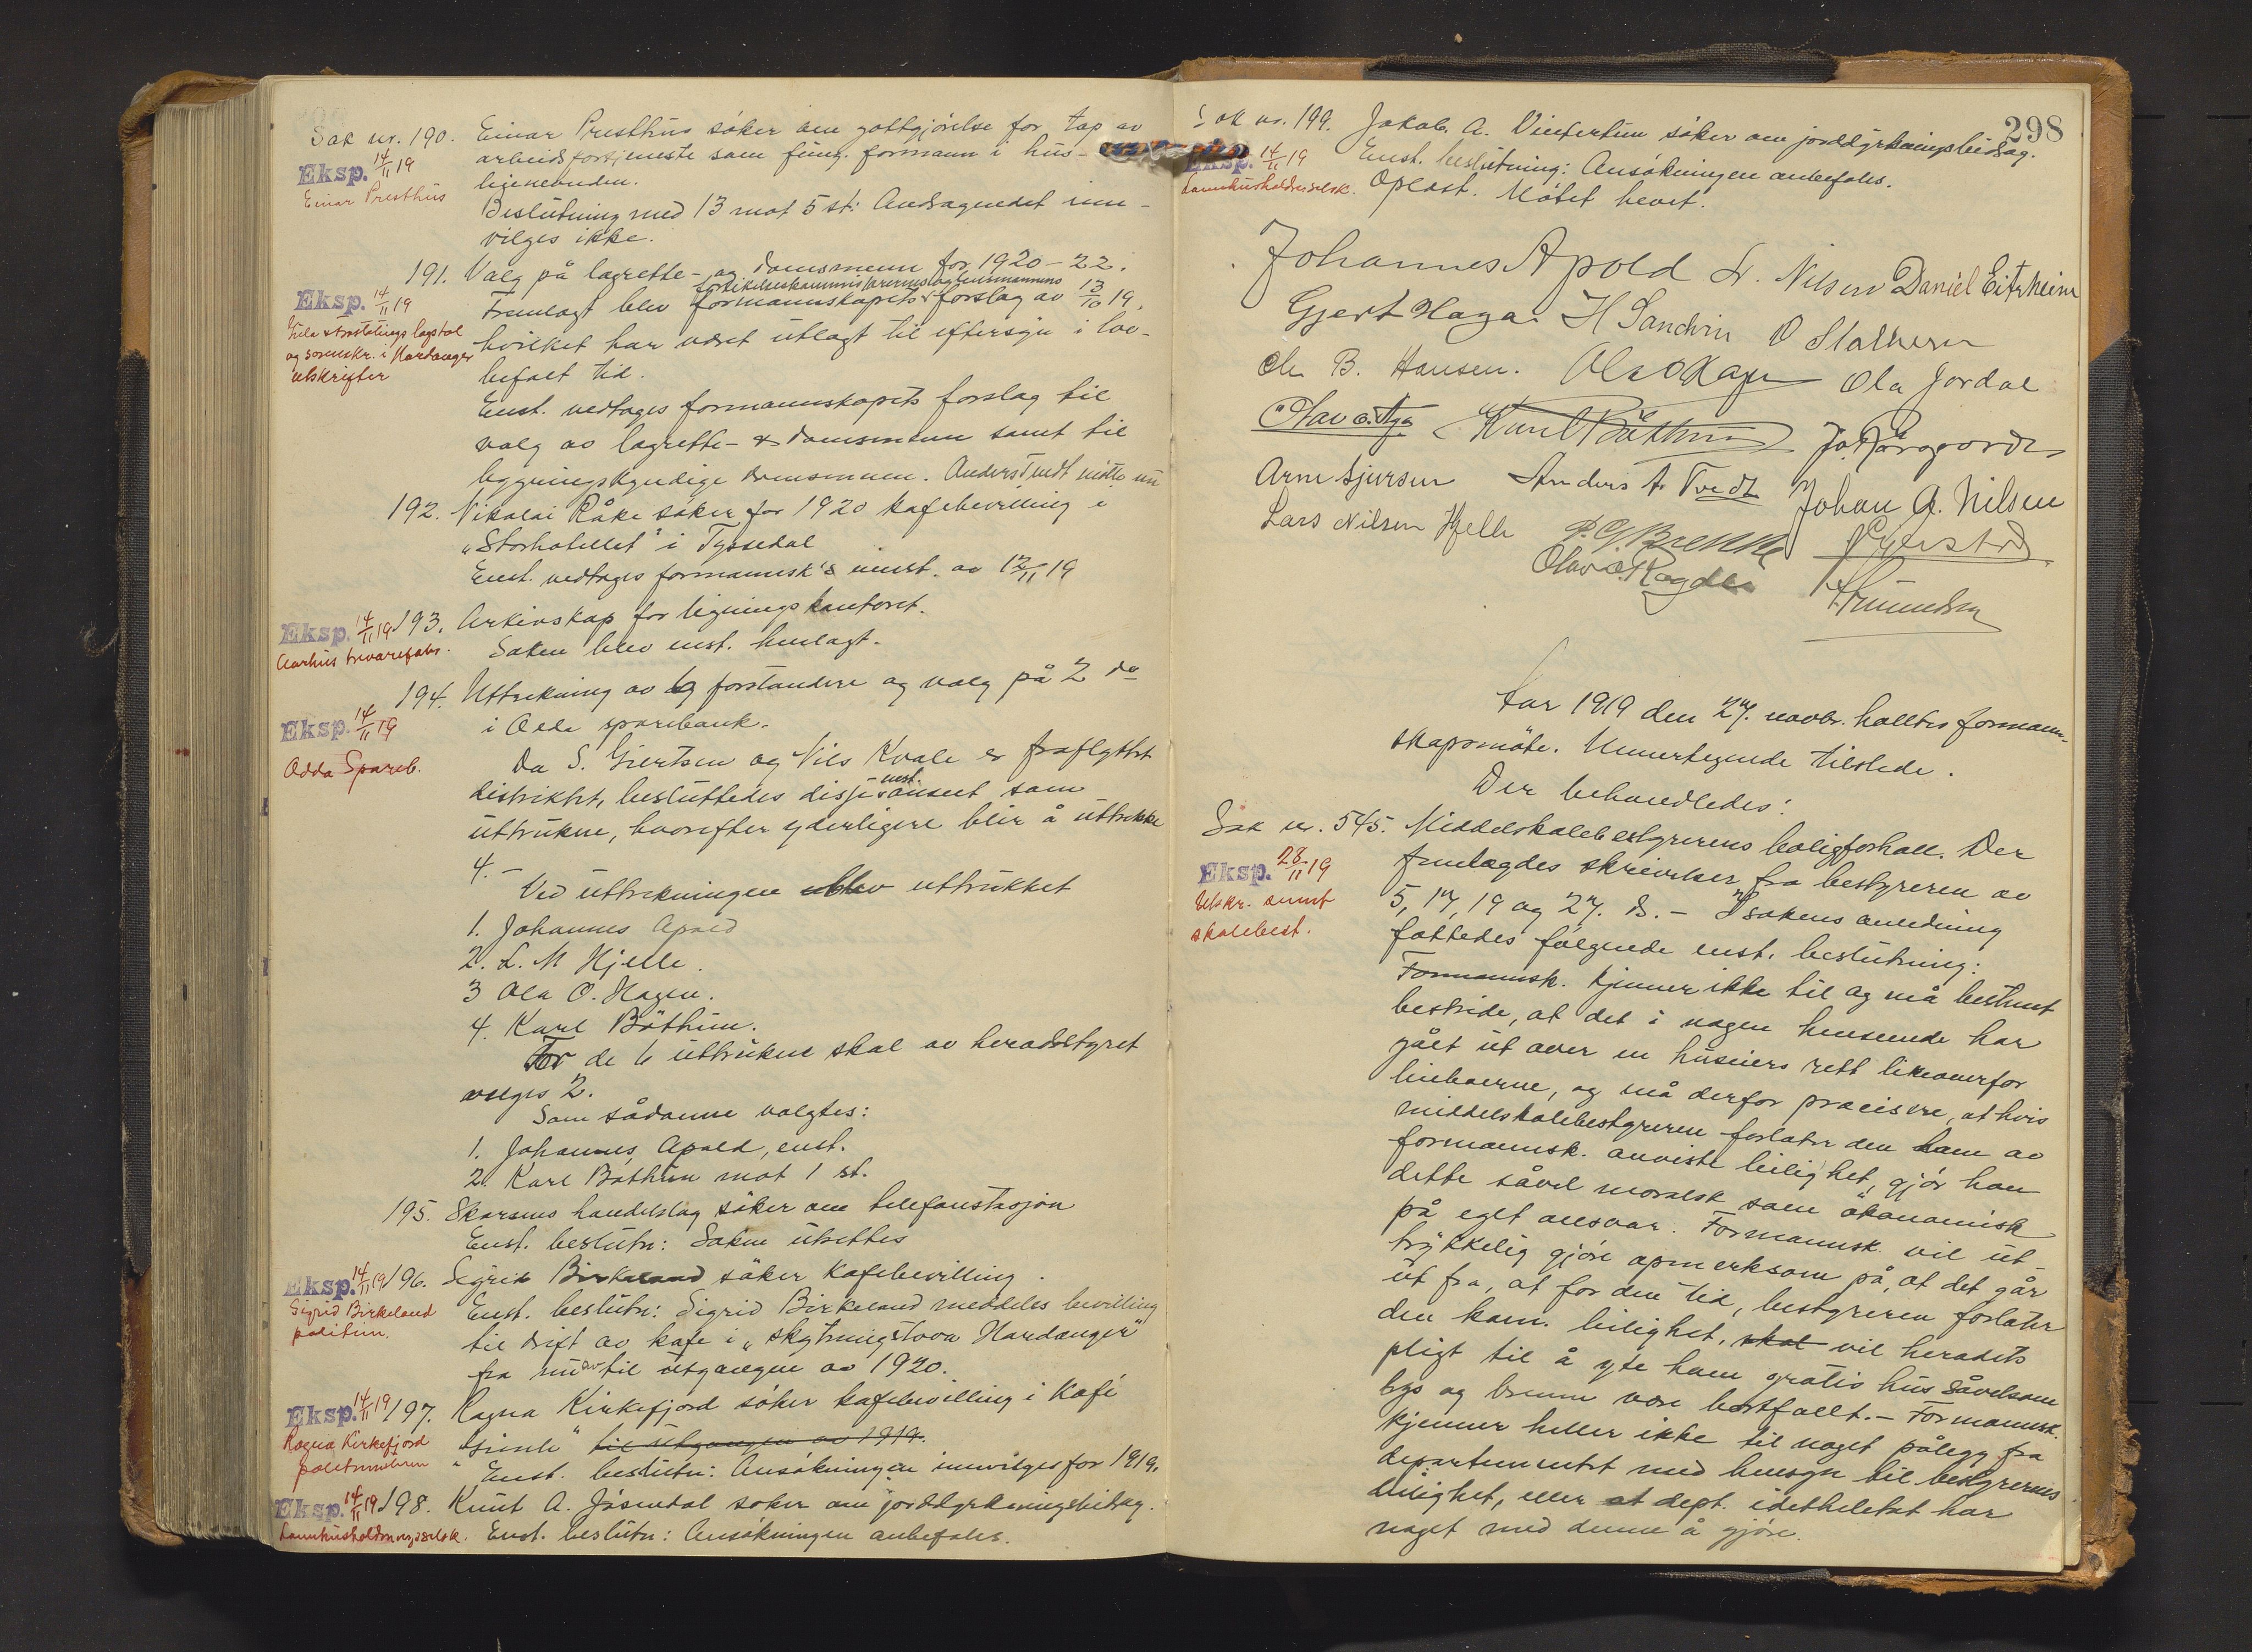 Sak nr. 190. Einar Presthus søker om gottgjörelse for tap av
Eksp. 14/11 19 arbeidsfortjeneste som fung. formann i hus-
Einar Presthus leienevnden.
Beslutning med 13 mot 5 st: Andragendet inn-
vilges ikke.
191. Valg på lagrette- og domsmenn for 1920-22.
Eksp. 14/11 19 Fremlagt blev formannskapets forslag av 13/10 19,
hvilket har været utlagt til eftersyn i lov-
og sorenskr. i Hardanger
utskrifter
befalt tid.
Enst. vedtages formannskapets forslag til
valg av lagrette- & domsmenn samt til
bygningskyndige domsmenn. Anders Tvedt møtte nu
192. Nikolai Råke søker for 1920 kafebevilling i
"Storhotellet" i Tyssedal
Enst. vedtages formannsk's innst. av 12/11 19
Eksp. 14/11 19 193. Arkivskap for ligningskontoret.
Aarhus trevarefabr. Saken blev enst. henlagt.
194. Uttrekning av 6 forstandere og valg på 2 do
Eksp. 14/11 19 i Odda sparebank.
Odda Spareb. Da S. Giertsen og Nils Kvale er fraflyttet
enst.
distriktet, besluttedes disse ansett som
uttrukne, hvorefter yderligere blir å uttrekke
4. -
Ved uttrekningen blev uttrukket
1. Johannes Apold
2. L. N Hjelle.
3 Ola O. Hagen.
4. Karl Böthun.
For de 6 uttrukne skal av heradstyret
velges 2.
Som sådanne valgtes:
1. Johannes Apold, enst.
2. Karl Böthun mot 1 st.
195. Skarsmo handelslag söker om telefonstasjon
Enst. beslutn: Saken utsettes
Eksp. 14/11 19 196. Sigrid Birkeland söker kafebevilling.
Sigrid Birkeland Enst. beslutn: Sigrid Birkeland meddeles bevilling
politim. til drift av kafe i "Skytningstova Hardanger"
fra nu av til utgangen av 1920.
Eksp. 14/11 19 197. Ragna Kirkefjord söker kafebevilling i Kafé
Ragna Kirkefjord til utgangen av 1919.
politimesteren Enst. beslutn: Ansökningen innvilges for 1919.
Eksp. 14/11 19 198. Knut A. Jösendal søker om jorddyrkningsbidrag.
Lannhusholdningsselsk. Enst. beslutn: Ansökningen anbefales.
298
Sak nr. 199. Jakob. A. Vintertun söker om jorddyrkningsbidrag.
Eksp. 14/11 19 Enst. beslutning: Ansökningen anbefales.
Lannhusholdn.selsk. Oplest. Mötet hevet.
Johannes Apold N. Nilsen Daniel Eitrheim
Gjert Haga H Sandvin O Stalheim
Chr B. Hansen. Ola O Hagen Ola Jordal
Olav Karl Böthun
Arne Sjursen Anders A. Tvedt Johan A. Nilsen
Lars Nilsen Hjelle P. G. Brekke
Olav O. Ragde
Aar 1919 den 27. novbr. holltes formann-
skapsmöte. Unnertegnede tilstede.
Der behandledes:
Sak nr. 545. Middelskolebestyrerens boligforhold. Der
Eksp. 28/11 19 fremlagdes skrivelser fra bestyreren av
Utskr. sennt 5, 17, 19 og 27. ds. - I sakens anledning
skolebest. fattedes følgende enst. beslutning:
Formannsk. kjenner ikke til og må bestemt
bestride, at det i nogen henseende har
gået ut over en huseiers rett likeoverfor
leieboerne, og må derfor præcisere, at hvis
middelskolebestyreren forlater den ham av
formannsk. anviste leilighet, gjör han
dette såvel moralsk som ökonomisk
på eget ansvar. Formannsk. vil ut-
trykkelig gjöre opmerksom på, at det går
ut fra, at for den tid, bestyreren forlater
den kom. leilighet, skal vil heradets
pligt til å yte ham gratis hus såvelsom
lys og brenne være bortfallt. - Formannsk.
kjenner heller ikke til noget pålegg fra
departementet med hensyn til bestyrerens
leilighet, eller at dept. idethele tat har
noget med denne å gjöre.